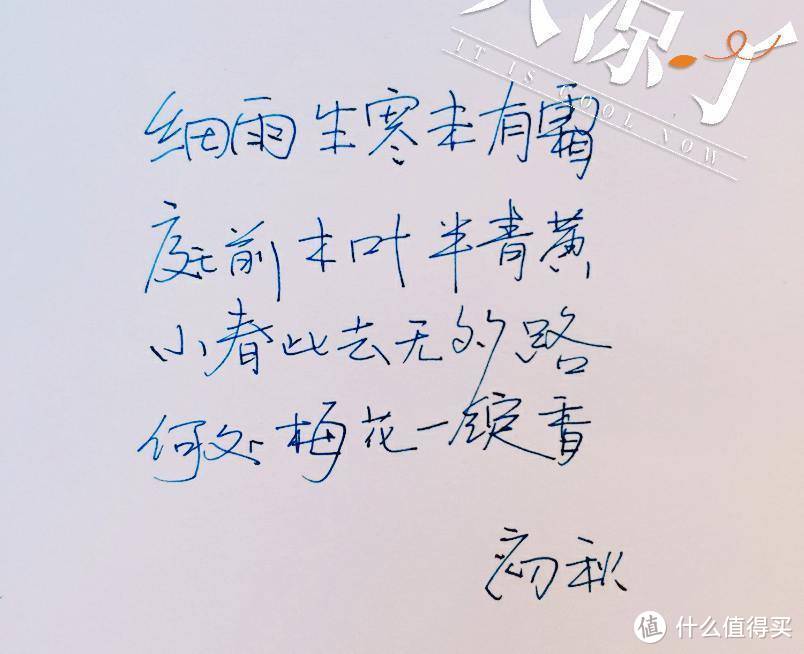 凉了
IT IS COOL NOW
细雨生寒未有霜
庭前木叶半青黄
小春此去无多路
何处梅花一绽香
秋
值 什么值得买